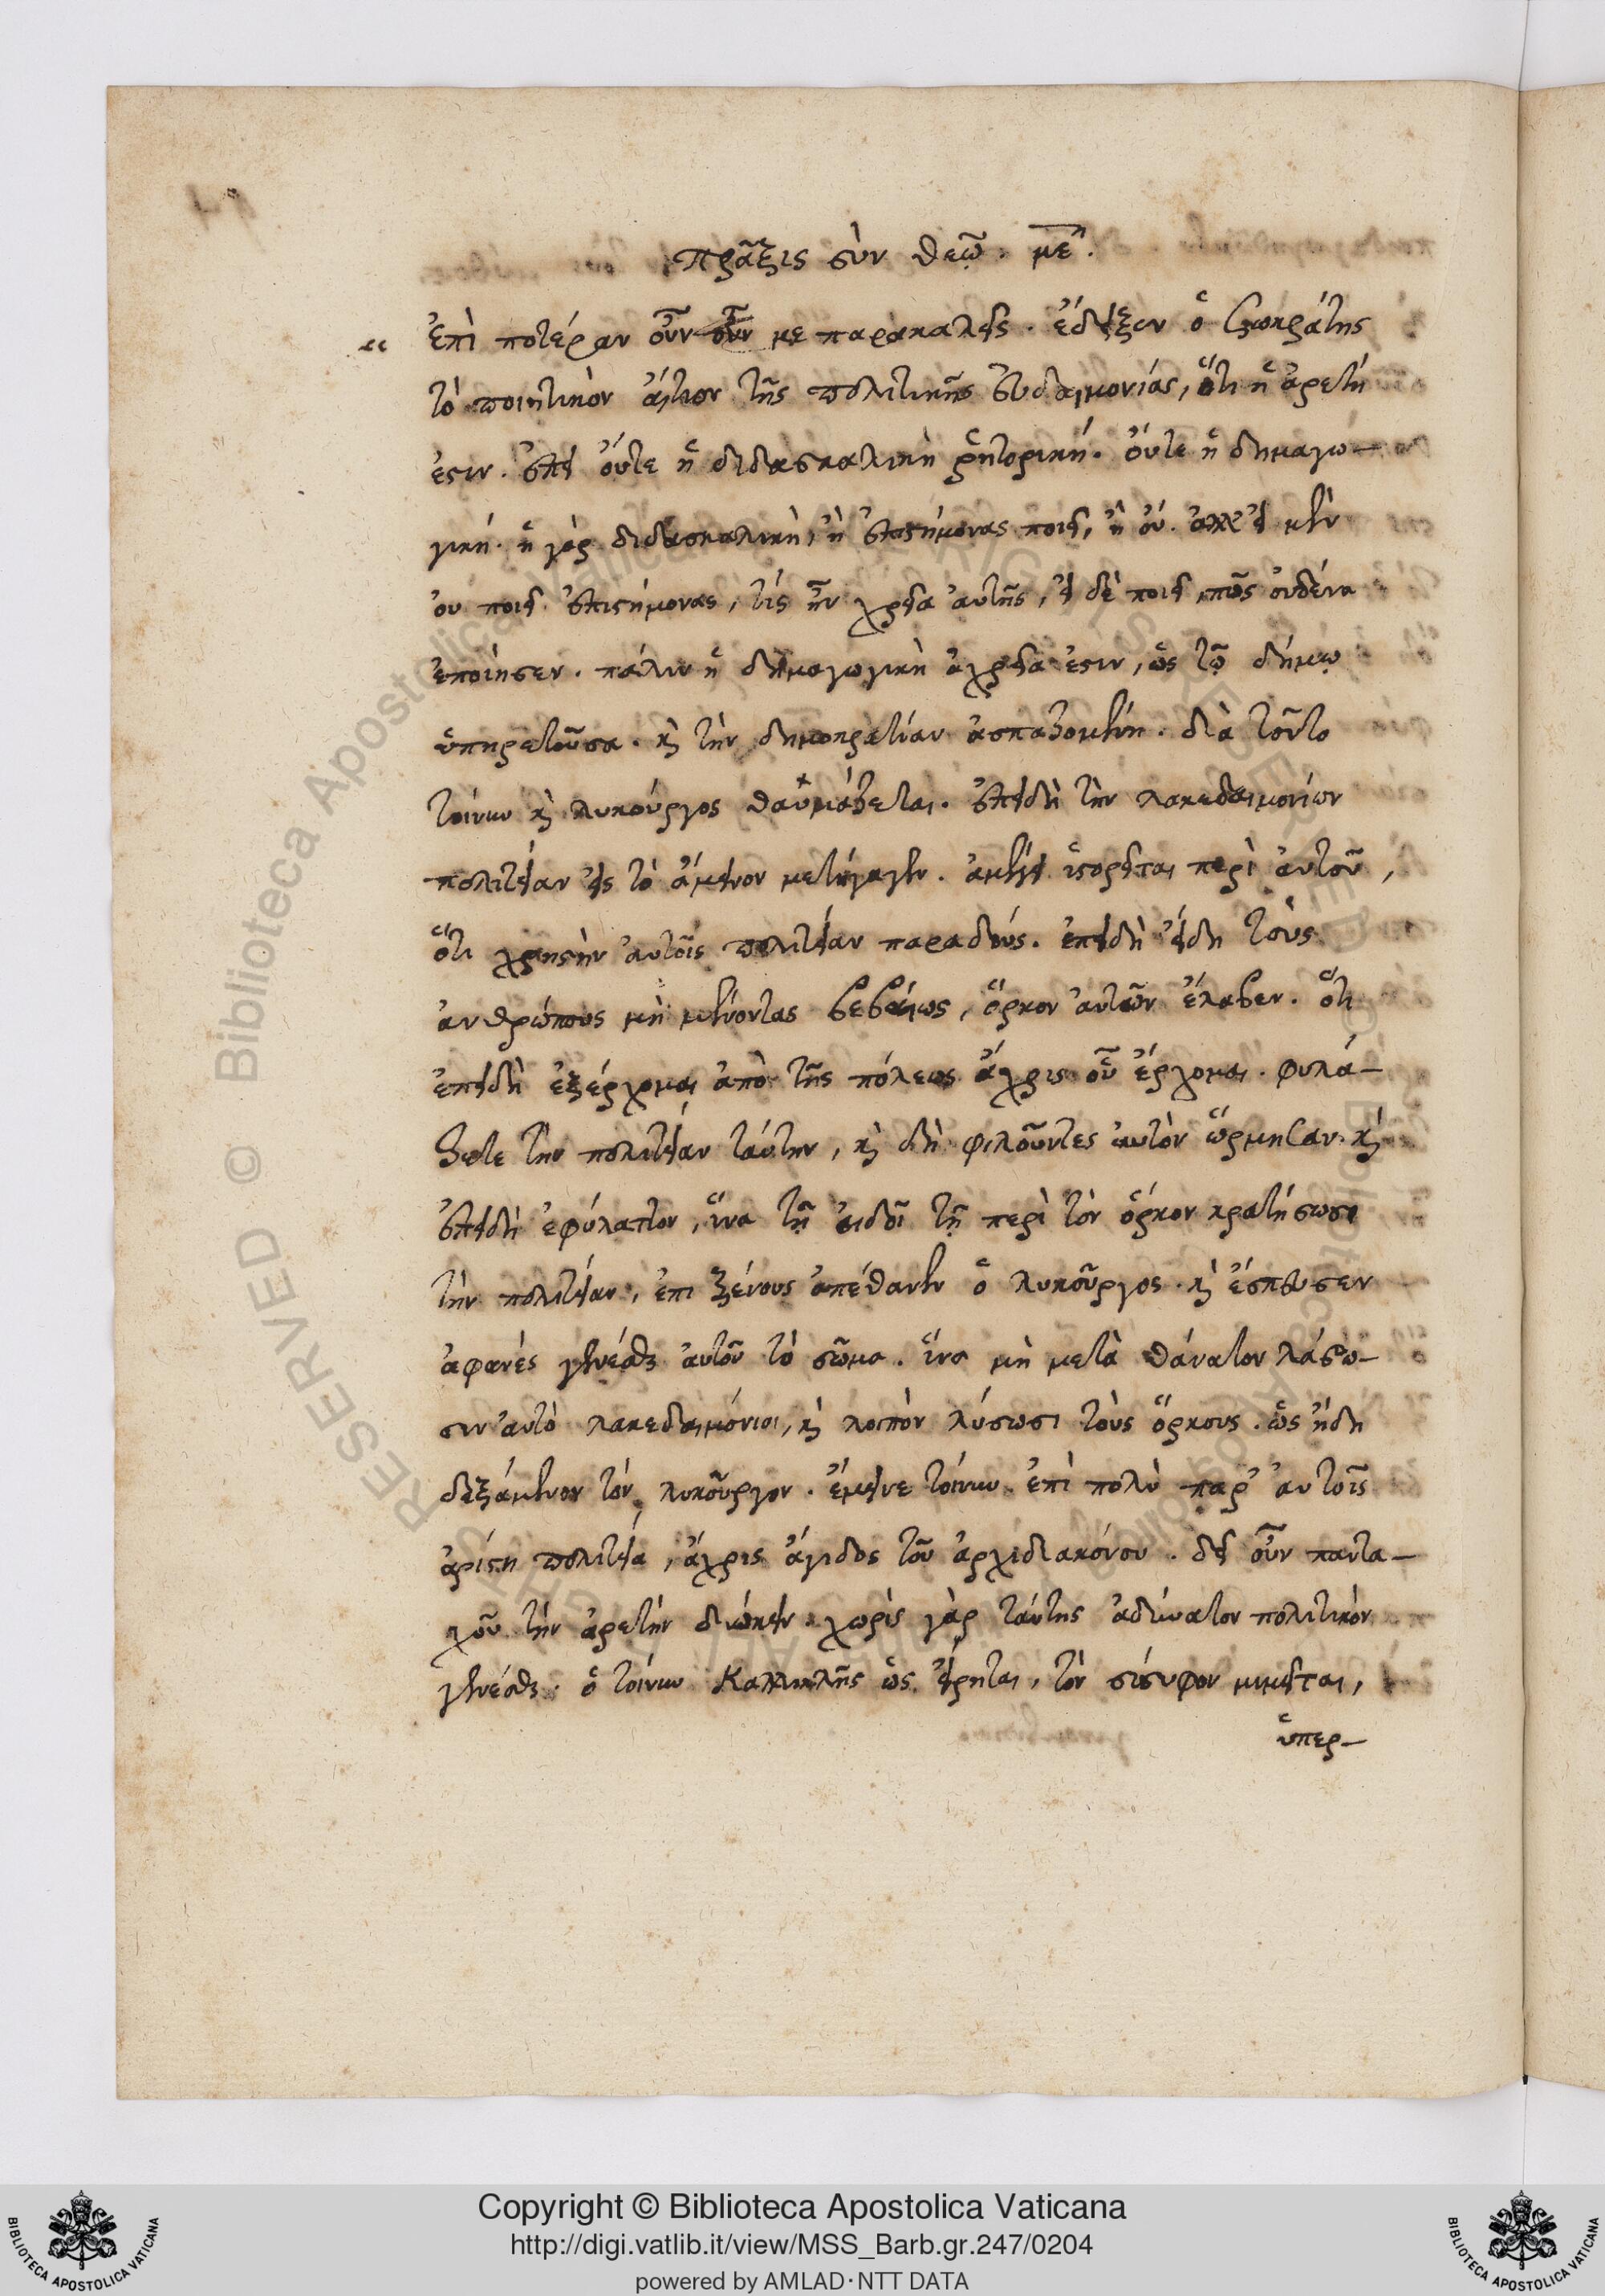 πρᾶξις σὺν θεῷ. με.
“ ἐπὶ ποτέραν οὖν με παρακαλεῖς. ἔδειξεν ὁ Σωκράτης
τὸ ποιητικὸν αἴτιον τῆς πολιτικῆς εὐδαιμονίας, ὅτι ἡ ἀρετή
ἐστιν. ἐπεὶ οὔτε ἡ διδασκαλικὴ ῥητορική. οὔτε ἡ δημαγω-
γική. ἡ γὰρ διδασκαλικὴ, ἢ ἐπιστήμονας ποιεῖ, ἢ οὔ. ἀλλ' εἰ μὲν
ου ποιεῖ ἐπιστήμονας, τίς ἦν χρεία αὐτῆς, εἰ δὲ ποιεῖ, πῶς οὐδένα
ἐποίησεν. πάλιν ἡ δημαγωγικὴ ἀχρεία ἐστιν, ὡς τῷ δήμῳ
ὑπηρετοῦσα. καὶ τὴν δημοκρατίαν ἀσπαζομένη. διὰ τοῦτο
τοίνυν καὶ λυκούργος θαυμάζεται. ἐπειδὴ τὴν λακεδαιμονίων
πολιτείαν εἰς τὸ ἄμεινον μετήγαγεν. ἀμέλει ἱστορεῖται περὶ αὐτοῦ,
ὅτι χρηστὴν αὐτοῖς πολιτείαν παραδούς. ἐπειδὴ εἴδη τοὺς
ανθρώπους μὴ μένοντας βεβαίως, ὅρκον αὐτῶν ἔλαβεν. ὅτι
ἐπειδὴ ἐξέρχομαι ἀπὸ τῆς πόλεως ἄχρις οὗ ἔρχομαι. φυλά-
ξατε τὴν πολιτείαν ταύτην, καὶ δὴ φιλοῦντες αὐτὸν ὥρμησαν. καὶ
ἐπειδὴ ἐφύλαττον, ἵνα τῇ αἰδοῖ τῇ περὶ τὸν ὅρκον κρατήσωσι
τὴν πολιτείαν, ἐπι ξένους ἀπέθανεν ὁ λυκοῦργος. καὶ ἔσπευσεν
ἀφανές γενέσθαι αὐτοῦ τὸ σῶμα. ἵνα μὴ μετὰ θάνατον λάβω-
σιν αὐτὸ λακεδαιμόνιοι, καὶ λοιπὸν λύσωσι τοὺς ὅρκους. ὡς ἤδη
δεξάμενον τὸν λυκοῦργον. ἔμεινε τοίνυν ἐπὶ πολὺ παρ' αὐτοῖς
ἀρίστη πολιτεία, ἄχρις ἄγιδος τοῦ ἀρχιδιακόνου. δεῖ οὖν παντα-
χοῦ τὴν ἀρετὴν διώκειν. χωρὶς γὰρ ταύτης ἀδύνατον πολιτικὸν
γενέσθαι. ὁ τοίνυν Καλλικλῆς ὡς εἴρηται, τὸν σίσυφον μιμεῖται,
ὑπερ-
RESERVED © Biblioteca Apostolica Vaticana
Copyright © Biblioteca Apostolica Vaticana
http://digi.vatlib.it/view/MSS_Barb.gr.247/0204
powered by AMLAD·NTT DATA
BIBLIOTECA APOSTOLICA VATICANA
BIBLIOTECA APOSTOLICA VATICANA